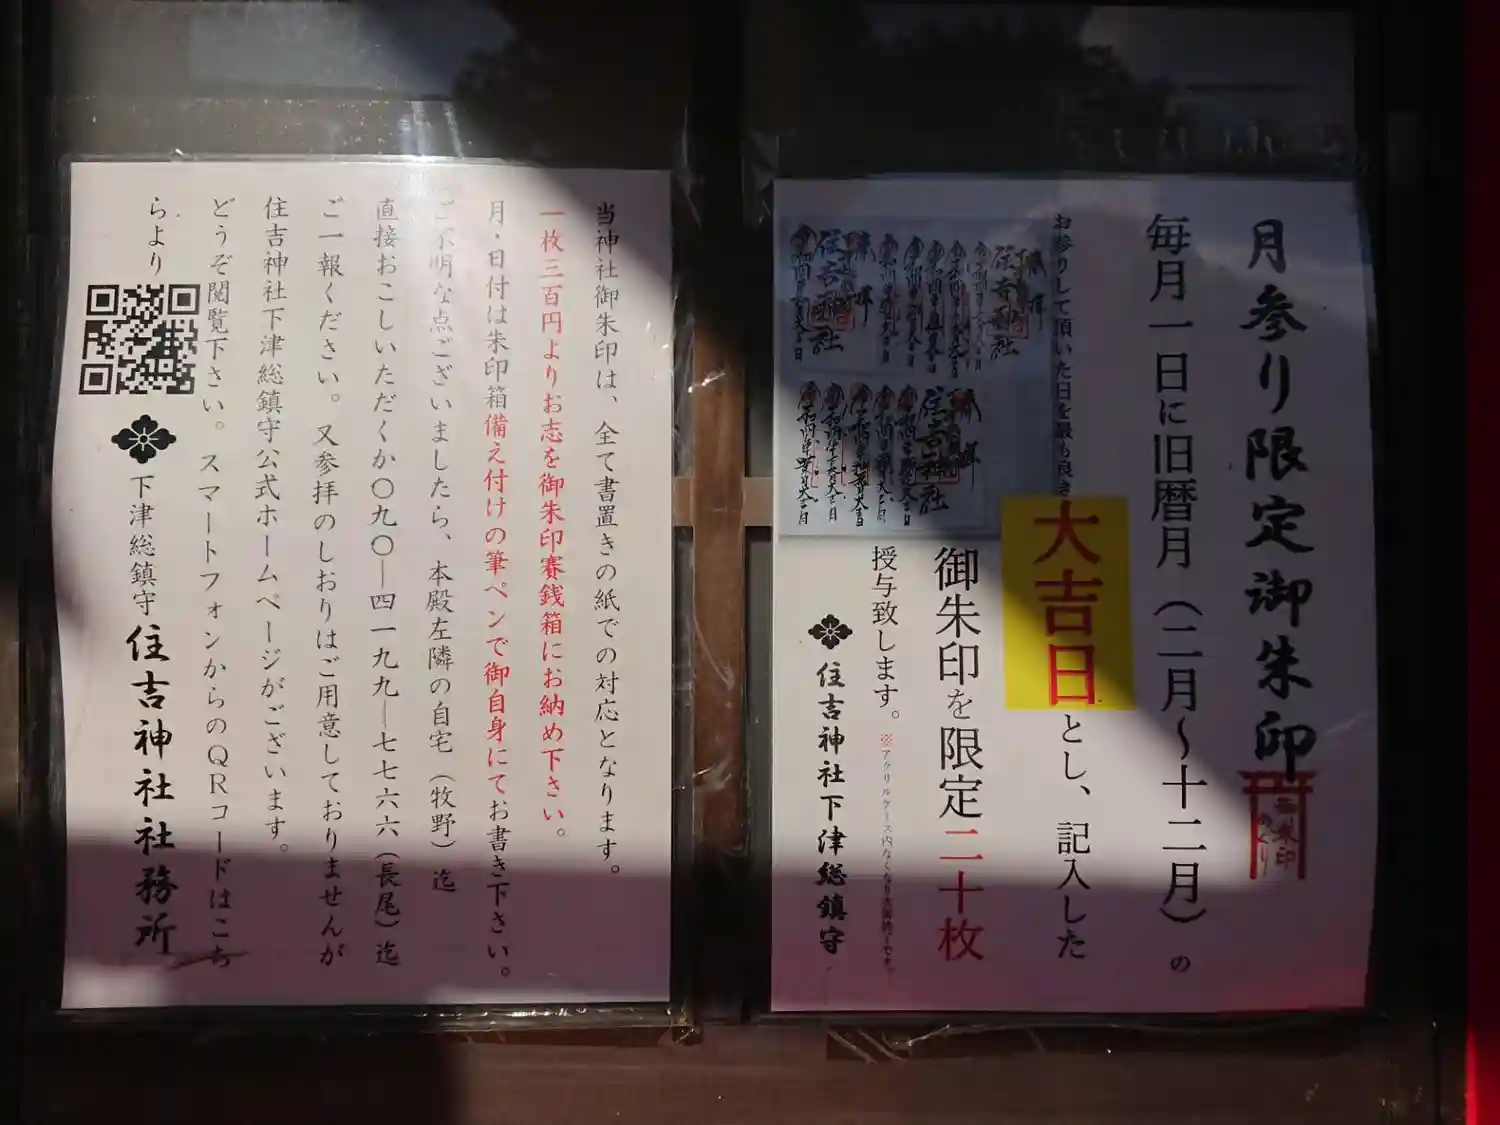 月参り限定御朱印
毎月一日に旧暦月（二月～十二月）の
お参りして頂いた日を最も良き大吉日とし、記入した
御朱印を限定二十枚
授与致します。
※アクリルケース内なくなり次第終了です。
住吉神社下津総鎮守
当神社御朱印は、全て書置きの紙での対応となります。
一枚三百円よりお志を御朱印賽銭箱にお納め下さい。
月・日付は朱印箱備え付けの筆ペンで御自身にてお書き下さい。
ご不明な点ございましたら、本殿左隣の自宅（牧野）迄
直接おこしいただくか〇九〇―四一九九―七七六六（長尾）迄
ご一報ください。又参拝のしおりはご用意しておりませんが
住吉神社下津総鎮守公式ホームページがございます。
どうぞ閲覧下さい。スマートフォンからのQRコードはこち
らより
下津総鎮守住吉神社社務所